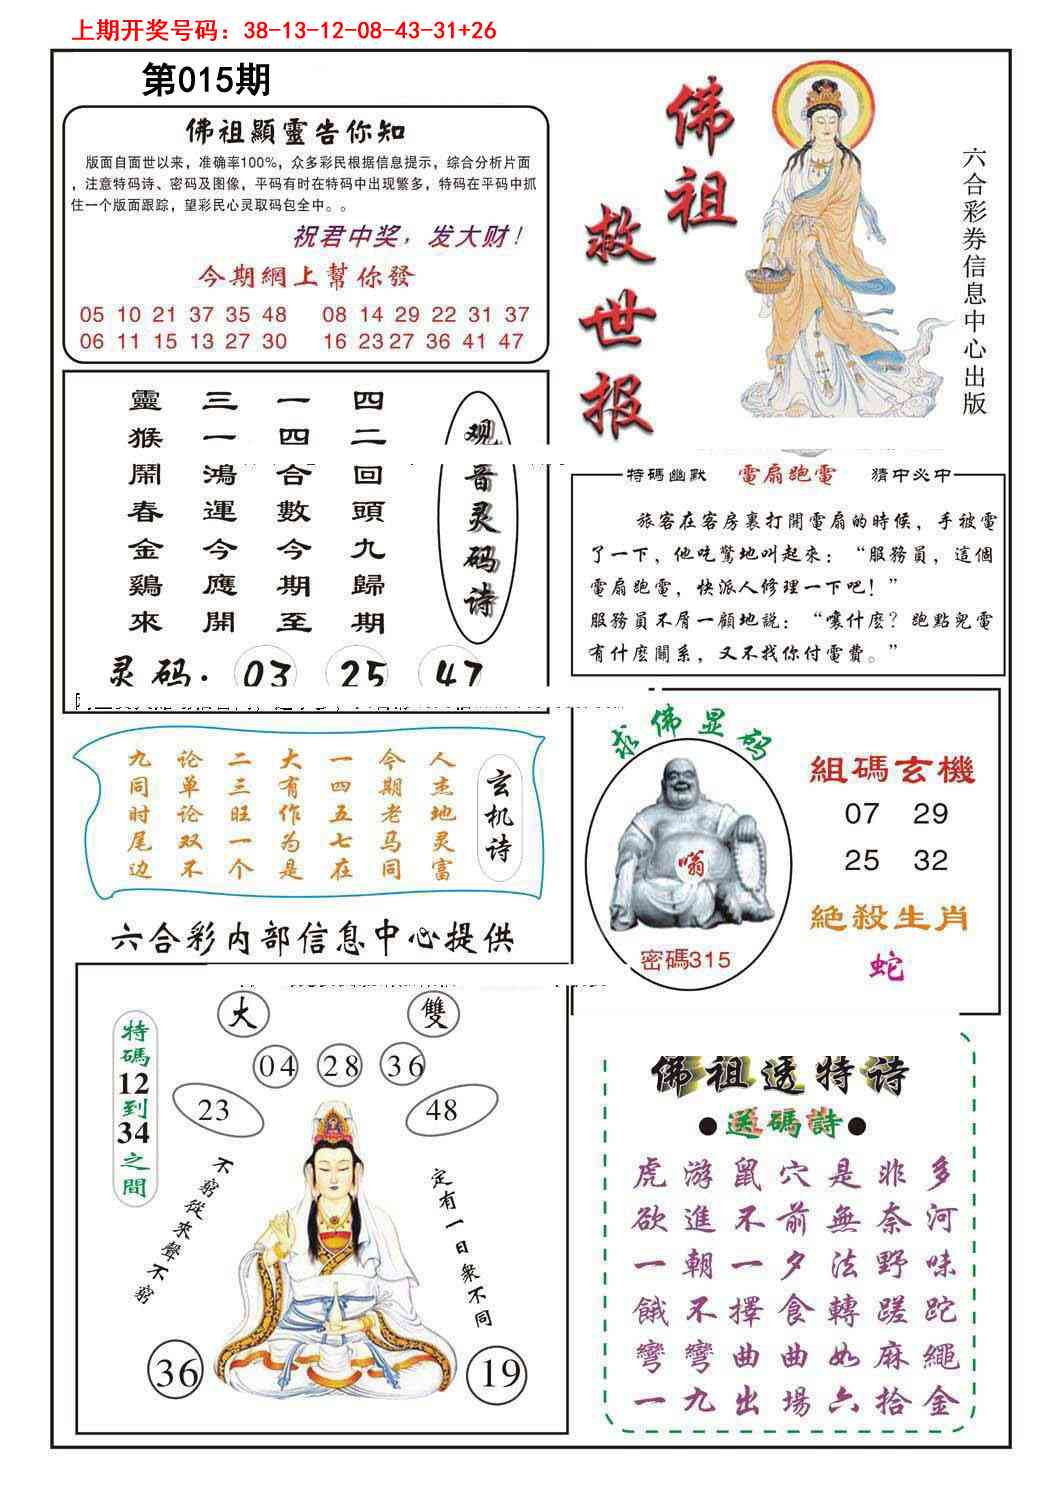 上期开奖号码：38-13-12-08-43-31+26
第015期
佛祖顯靈告你知
版面自面世以来，准确率100%，众多彩民根据信息提示，综合分析片面
，注意特码诗、密码及图像，平码有时在特码中出现繁多，特码在平码中抓
住一个版面跟踪，望彩民心灵取码包全中。。
祝君中奖，发大财！
今期網上幫你發
05 10 21 37 35 48 08 14 29 22 31 37
06 11 15 13 27 30 16 23 27 36 41 47
佛祖
救世报
六合彩券信息中心出版
四二回頭九歸期
一四合數今期至
三一鴻運今應開
靈猴鬧春金鷄來
观音灵码诗
灵码· 03 25 47
特碼幽默 電扇跑電 猜中必中
旅客在客房裏打開電扇的時候，手被電
了一下，他吃驚地叫起來：“服務員，這個
電扇跑電，快派人修理一下吧！”
服務員不屑一顧地説：“嚷什麼？跑點兒電
有什麼關系，又不找你付電費。”
玄机诗
人杰地灵富
今期老马同
一四五七在
大有作为是
二三旺一个
论单论双不
九同时尾边
求佛显码
嗡
密碼315
組碼玄機
07 29
25 32
絶殺生肖
蛇
六合彩内部信息中心提供
特碼12到34之間
大 雙
04 28 36
23 48
不窮從來聲不窮
定有一日衆不同
36 19
佛祖透特诗
●送碼詩●
虎游鼠穴是非多
欲進不前無奈河
一朝一夕法野味
餓不擇食轉蹉跎
彎彎曲曲如麻繩
一九出場六拾金